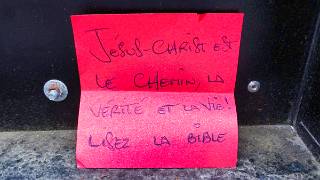 JÉSUS-CHRIST EST
LE CHEMIN, LA
VÉRITÉ ET LA VIE!
LISEZ LA BIBLE